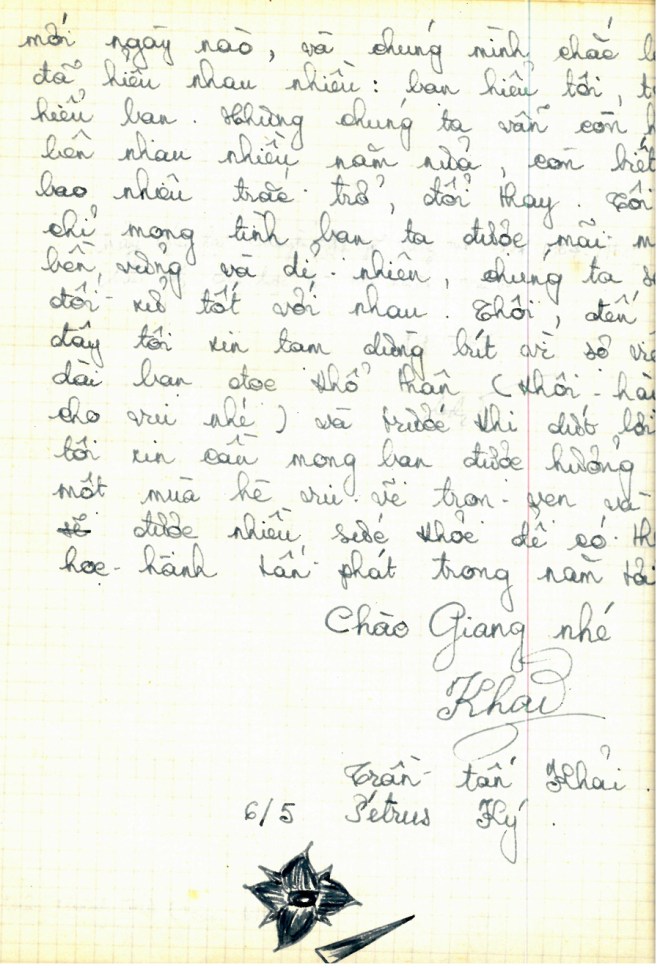 mới ngày nào, và chúng mình chắc
đã hiểu nhau nhiều: bạn hiểu tôi,
hiểu bạn. Nhưng chúng ta vẫn còn
bên nhau nhiều năm nữa, còn biết
bao nhiêu trắc trở, đổi thay. Tôi
chỉ mong tình bạn ta được mãi
bền vững và dĩ nhiên, chúng ta
đối xử tốt với nhau. Thôi, đến
đây tôi xin tạm dừng bút vì sợ
dài bạn đọc khổ thân (khôi-hài
cho vui nhé) và trước khi dứt lời
tôi xin cầu mong bạn được hưởng
một mùa hè vui vẽ trọn-vẹn và
được nhiều sức khỏe để có
học-hành tấn phát trong năm tới
Chào Giang nhé
Khải
Trần tấn Khải
6/5 Pétrus Ký